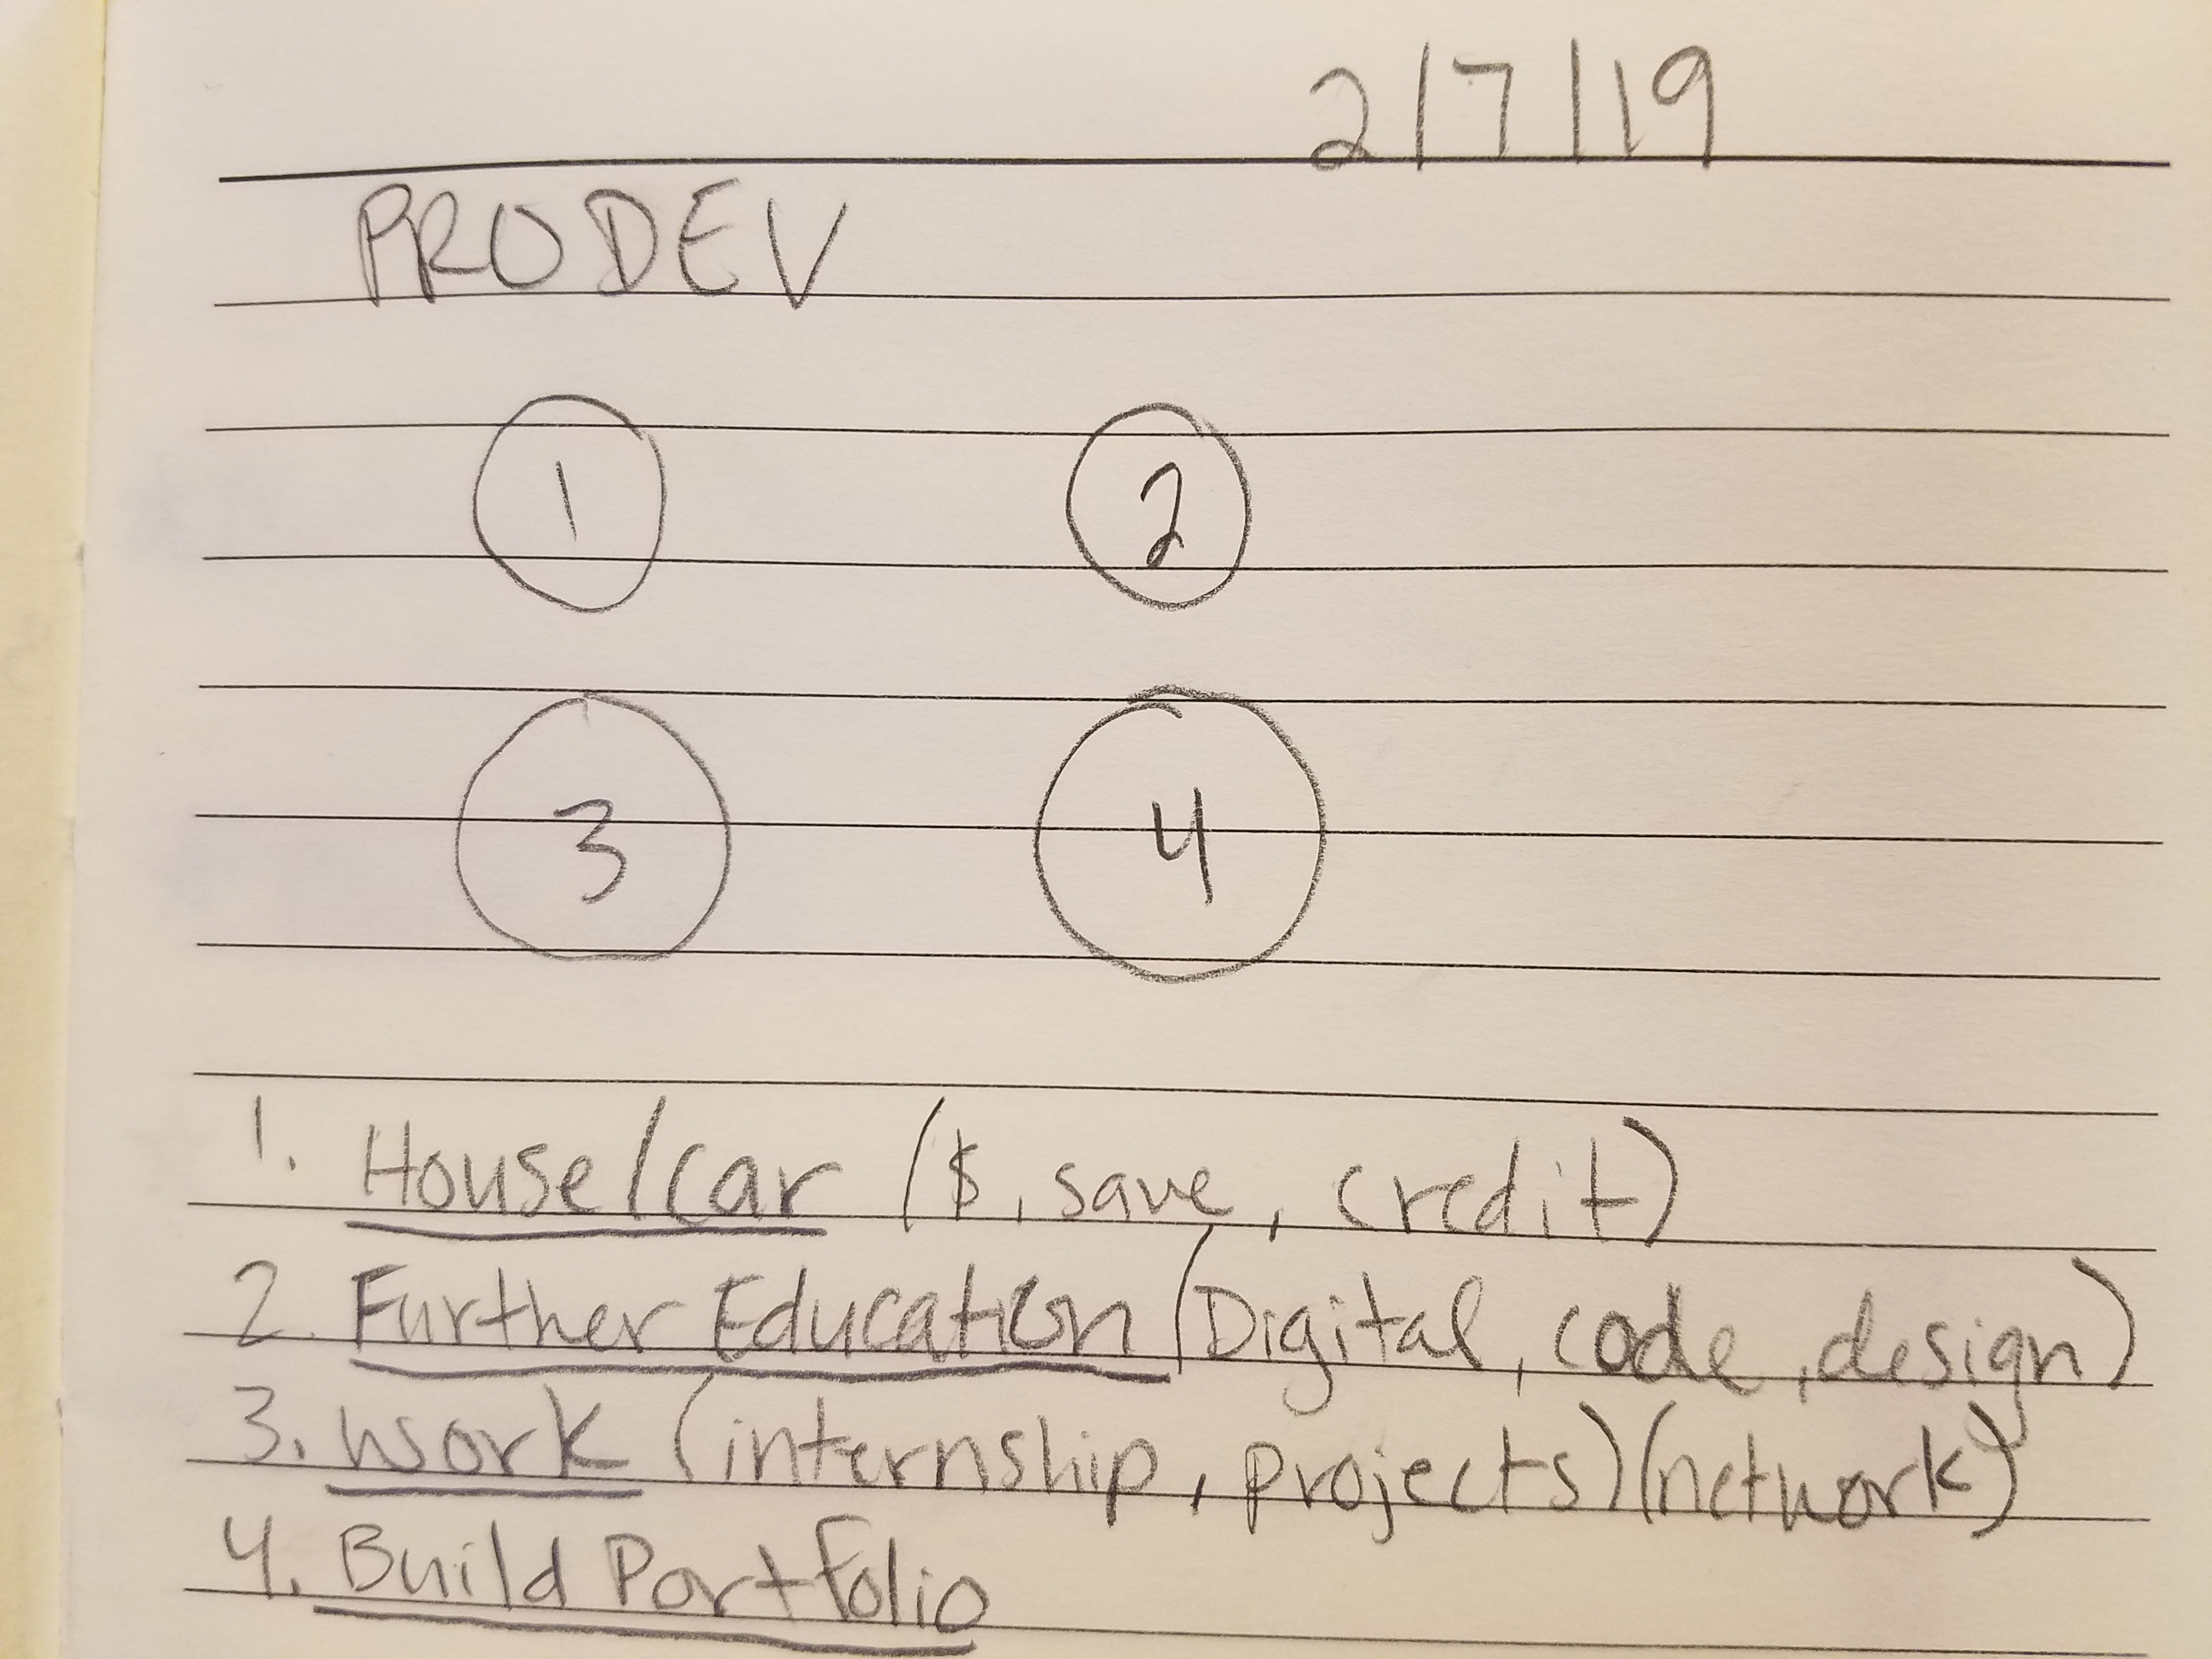 2/7/19
PRODEV
1 2
3 4
1. House/car ($, save, credit)
2. Further Education (Digital, code, design)
3. Work (internship, projects) (network)
4. Build Portfolio